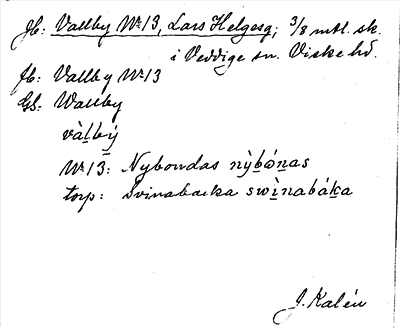 Jb: Vallby Nr 13, Lars Helgesg; 3/8 mtl. sk.
i Veddige sn. Viske hd.
Jb: Vallby Nr 13
GS: Wallby
vàḻbý
Nr 13: Nybondas nỳḇónas
torp: Svinabacka swìnabáḵa
J. Kalén